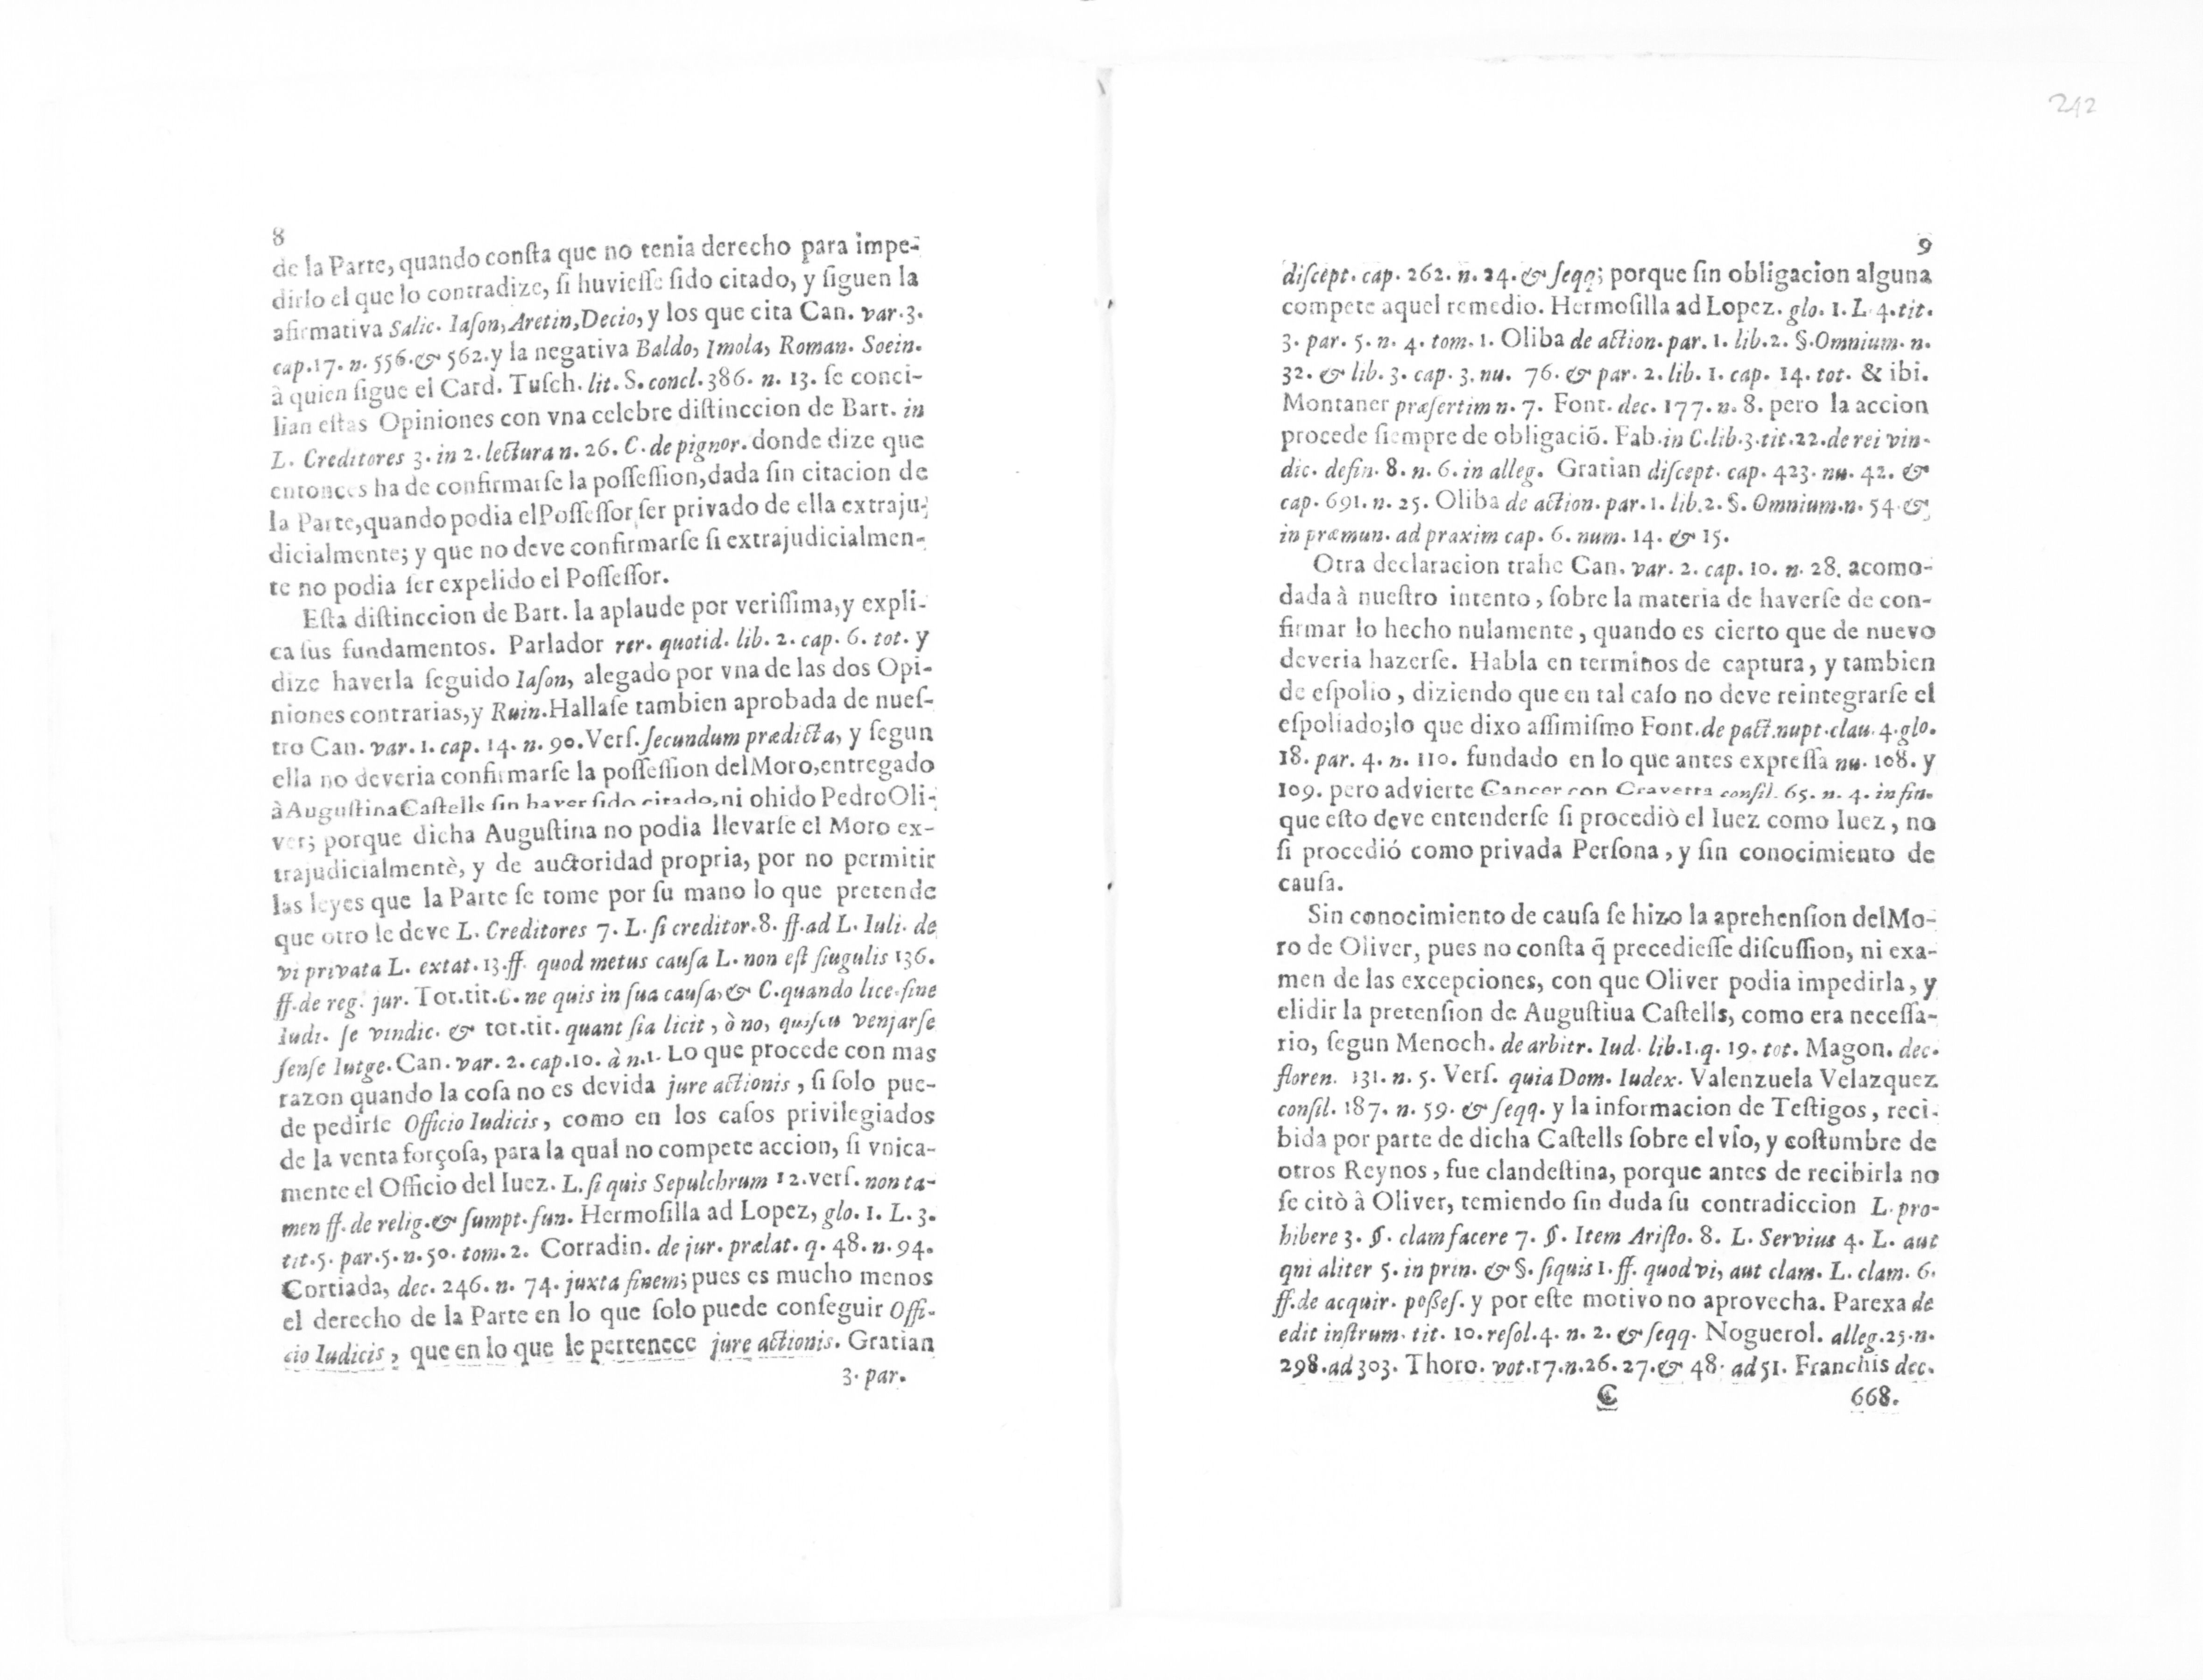 8
de la Parte, quando conſta que no tenia derecho para impe-
dirlo el que lo contradize, ſi huvieſſe ſido citado, y ſiguen la
afirmativa Salic. Iaſon, Aretin, Decio, y los que cita Can. var. 3.
cap. 17. n. 556. & 562. y la negativa Baldo, Imola, Roman. Soein.
à quien ſigue el Card. Tuſch. lit. S. concl. 386. n. 13. ſe conci-
lian eſtas Opiniones con vna celebre diſtinccion de Bart. in
L. Creditores 3. in 2. lectura n. 26. C. de pignor. donde dize que
entonces ha de confirmarſe la poſſeſſion, dada ſin citacion de
la Parte, quando podia el Poſſeſſor ſer privado de ella extraju-
dicialmente; y que no deve confirmarſe ſi extrajudicialmen-
te no podia ſer expelido el Poſſeſſor.
Eſta diſtinccion de Bart. la aplaude por veriſſima, y expli-
ca ſus fundamentos. Parlador rer. quotid. lib. 2. cap. 6. tot. y
dize haverla ſeguido Iaſon, alegado por vna de las dos Opi-
niones contrarias, y Ruin. Hallaſe tambien aprobada de nueſ-
tro Can. var. 1. cap. 14. n. 90. Verſ. ſecundum prædicta, y ſegun
ella no deveria confirmarſe la poſſeſſion del Moro, entregado
à Auguſtina Caſtells ſin haver ſido citado, ni ohido Pedro Oli-
ver; porque dicha Auguſtina no podia llevarſe el Moro ex-
trajudicialmentè, y de auctoridad propria, por no permitir
las leyes que la Parte ſe tome por ſu mano lo que pretende
que otro le deve L. Creditores 7. L. ſi creditor. 8. ff. ad L. Iuli. de
vi privata L. extat. 13. ff. quod metus cauſa L. non eſt ſiugulis 136.
ff. de reg. jur. Tot. tit. C. ne quis in ſua cauſa, & C. quando lice. ſine
Iudi. ſe vindic. & tot. tit. quant ſia licit, ò no, venjarſe
ſenſe Iutge. Can. var. 2. cap. 10. à n. 1. Lo que procede con mas
razon quando la coſa no es devida jure actionis, ſi ſolo pue-
de pedirſe Officio Iudicis, como en los caſos privilegiados
de la venta forçoſa, para la qual no compete accion, ſi vnica-
mente el Officio del Iuez. L. ſi quis Sepulchrum 12. verſ. non ta-
men ff. de relig. & ſumpt. fun. Hermoſilla ad Lopez, glo. 1. L. 3.
tit. 5. par. 5. n. 50. tom. 2. Corradin. de jur. prælat. q. 48. n. 94.
Cortiada, dec. 246. n. 74. juxta finem; pues es mucho menos
el derecho de la Parte en lo que ſolo puede conſeguir Offi-
cio Iudicis, que en lo que le pertenece jure actionis. Gratian
3. par.
242
9
diſcept. cap. 262. n. 24. & ſeqq; porque ſin obligacion alguna
compete aquel remedio. Hermoſilla ad Lopez. glo. 1. L. 4. tit.
3. par. 5. n. 4. tom. 1. Oliba de action. par. 1. lib. 2. §. Omnium. n.
32. & lib. 3. cap. 3. nu. 76. & par. 2. lib. 1. cap. 14. tot. & ibi.
Montaner præſertim n. 7. Font. dec. 177. n. 8. pero la accion
procede ſiempre de obligaciõ. Fab. in C. lib. 3. tit. 22. de rei vin-
dic. defin. 8. n. 6. in alleg. Gratian diſcept. cap. 423. nu. 42. &
cap. 691. n. 25. Oliba de action. par. 1. lib. 2. §. Omnium. n. 54. &
in præmun. ad praxim cap. 6. num. 14. & 15.
Otra declaracion trahe Can. var. 2. cap. 10. n. 28. acomo-
dada à nueſtro intento, ſobre la materia de haverſe de con-
firmar lo hecho nulamente, quando es cierto que de nuevo
deveria hazerſe. Habla en terminos de captura, y tambien
de eſpolio, diziendo que en tal caſo no deve reintegrarſe el
eſpoliado; lo que dixo aſſimiſmo Font. de pact. nupt. clau. 4. glo.
18. par. 4. n. 110. fundado en lo que antes expreſſa nu. 108. y
109. pero advierte Cancer con Cravetta conſil. 65. n. 4. in fin.
que eſto deve entenderſe ſi procediò el Iuez como Iuez, no
ſi procedió como privada Perſona, y ſin conocimiento de
cauſa.
Sin conocimiento de cauſa ſe hizo la aprehenſion del Mo-
ro de Oliver, pues no conſta q̃ precedieſſe diſcuſſion, ni exa-
men de las excepciones, con que Oliver podia impedirla, y
elidir la pretenſion de Auguſtiua Caſtells, como era neceſſa-
rio, ſegun Menoch. de arbitr. Iud. lib. 1. q. 19. tot. Magon. dec.
floren. 131. n. 5. Verſ. quia Dom. Iudex. Valenzuela Velazquez
conſil. 187. n. 59. & ſeqq. y la informacion de Teſtigos, reci-
bida por parte de dicha Caſtells ſobre el vſo, y coſtumbre de
otros Reynos, fue clandeſtina, porque antes de recibirla no
ſe citò à Oliver, temiendo ſin duda ſu contradiccion L. pro-
hibere 3. §. clam facere 7. §. Item Ariſto. 8. L. Servius 4. L. aut
qni aliter 5. in prin. & §. ſiquis 1. ff. quod vi, aut clam. L. clam. 6.
ff. de acquir. poßeſ. y por eſte motivo no aprovecha. Parexa de
edit inſtrum. tit. 10. reſol. 4. n. 2. & ſeqq. Noguerol. alleg. 25. n.
298. ad 303. Thoro. vot. 17. n. 26. 27. & 48. ad 51. Franchis dec.
C 668.